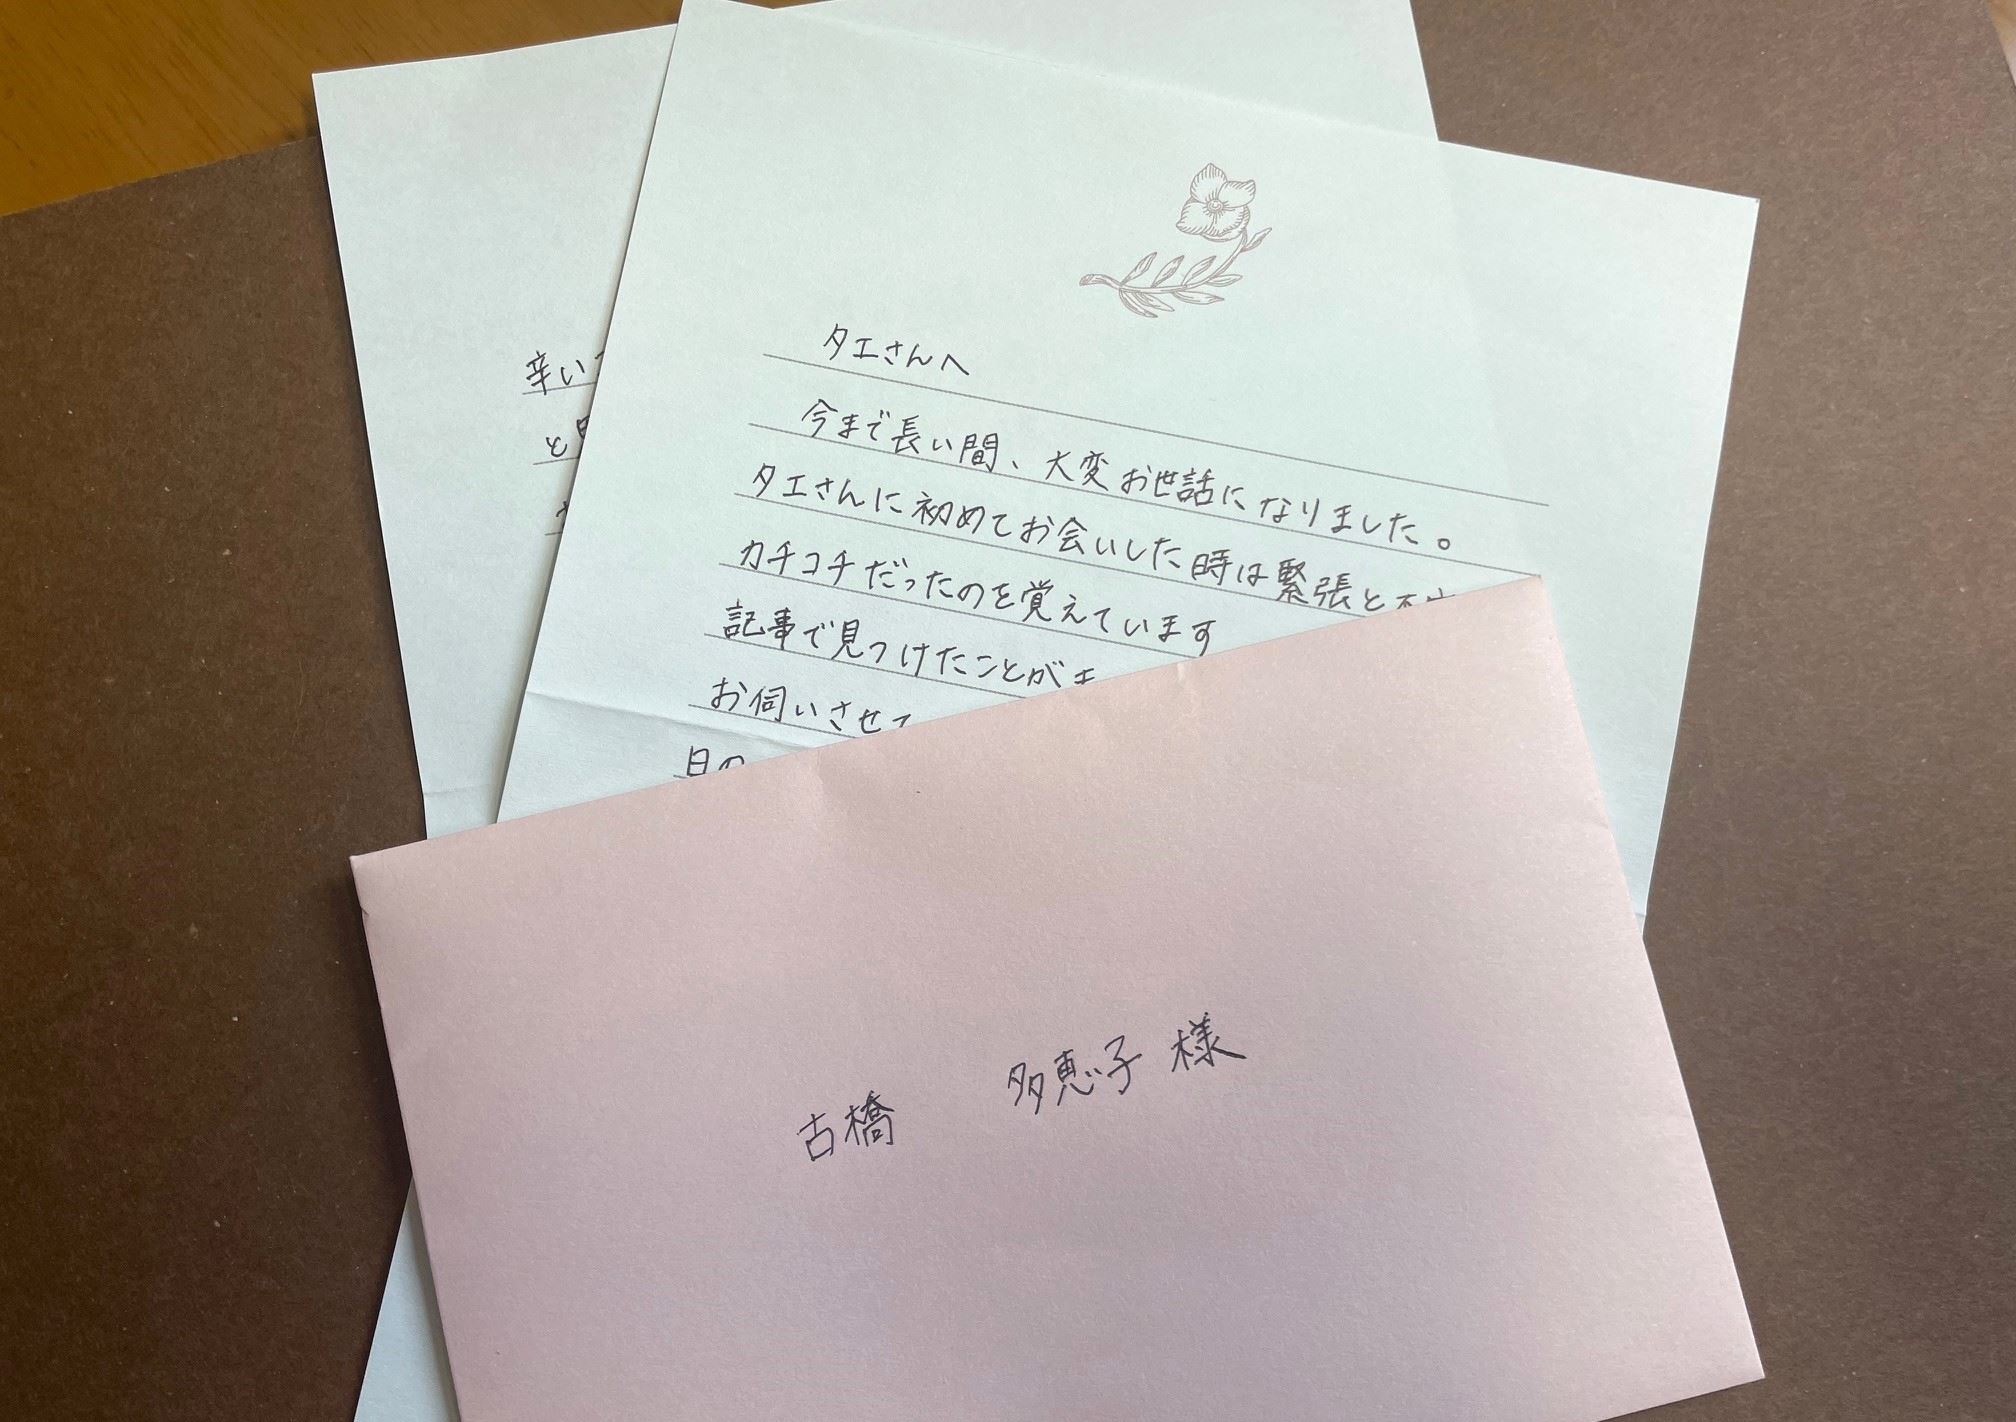 辛い
と
タエさんへ
今まで長い間、大変お世話になりました。
タエさんに初めてお会いした時は緊張と
カチコチだったのを覚えています
記事で見つけたことが
お伺いさせて
目の
古橋 多恵子 様